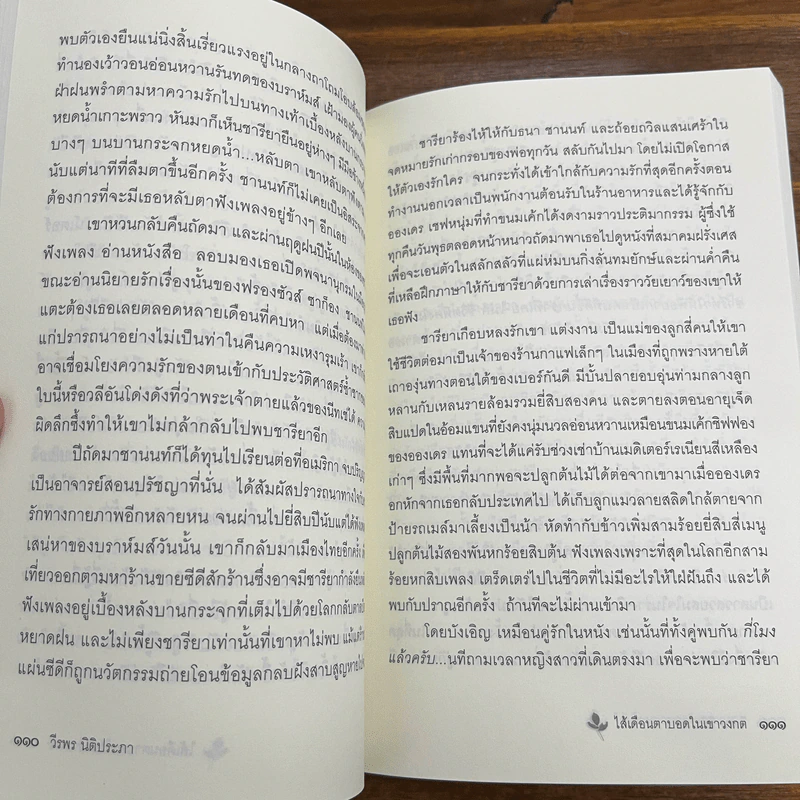 พบตัวเองยืนแน่นิ่งสิ้นเรี่ยวแรงอยู่ในกลางถาโถมโอบ
ทำนองเว้าวอนอ่อนหวานรันทดของบราห์มส์ เฝ้ามอง
ฝ่าฝนพรำตามหาความรักไปบนทางเท้าเบื้องหลังบาน
หยดน้ำเกาะพราว หันมาก็เห็นชารียายืนอยู่ห่างๆ มีมือ
บางๆ บนบานกระจกหยดน้ำ...หลับตา เขาหลับตาฟัง
นับแต่นาทีที่ลืมตาขึ้นอีกครั้ง ชานนท์ก็ไม่เคยเป็นอิสระ
ต้องการที่จะมีเธอหลับตาฟังเพลงอยู่ข้างๆ อีกเลย
เขาหวนกลับคืนถัดมา และผ่านฤดูฝนปีนั้นในห้อง
ฟังเพลง อ่านหนังสือ ลอบมองเธอเปิดพจนานุกรมใน
ขณะอ่านนิยายรักเรื่องนั้นของฟรองซัวส์ ซาก็อง ชานนท์
แตะต้องเธอเลยตลอดหลายเดือนที่คบหา แต่เมื่อต้อง
แก่ปรารถนาอย่างไม่เป็นท่าในคืนความเหงารุมเร้า เขา
อาจเชื่อมโยงความรักของตนเข้ากับประวัติศาสตร์
ใบนี้หรือวลีอันโด่งดังที่ว่าพระเจ้าตายแล้วของนีทเช่ได้
ผิดลึกซึ้งทำให้เขาไม่กล้ากลับไปพบชารียาอีก
ปีถัดมาชานนท์ก็ได้ทุนไปเรียนต่อที่อเมริกา จบ
เป็นอาจารย์สอนปรัชญาที่นั่น ได้สัมผัสปรารถนาทางใจ
รักทางกายภาพอีกหลายหน จนผ่านไปยี่สิบปีนับแต่ได้ฟัง
เสน่หาของบราห์มส์วันนั้น เขาก็กลับมาเมืองไทยอีกครั้ง
เที่ยวออกตามหาร้านขายซีดีสักร้านซึ่งอาจมีชารียากำลังยืน
ฟังเพลงอยู่เบื้องหลังบานกระจกที่เต็มไปด้วยโลกกลับตาลปัตร
หยาดฝน และไม่เพียงชารียาเท่านั้นที่เขาหาไม่พบ แม้แต่
แผ่นซีดีก็ถูกนวัตกรรมถ่ายโอนข้อมูลกลบฝังสาบสูญหายไป
๑๑๐ วีรพร นิติประภา
ชารียาร้องไห้ให้กับธนา ชานนท์ และถ้อยถวิลแสนเศร้าใน
จดหมายรักเก่ากรอบของพ่อทุกวัน สลับกันไปมา โดยไม่เปิดโอกาส
ให้ตัวเองรักใคร จนกระทั่งได้เข้าใกล้กับความรักที่สุดอีกครั้งตอน
ทำงานนอกเวลาเป็นพนักงานต้อนรับในร้านอาหารและได้รู้จักกับ
อองเดร เชฟหนุ่มที่ทำขนมเค้กได้งดงามราวประติมากรรม ผู้ซึ่งใช้
ทุกคืนวันพุธตลอดหน้าหนาวถัดมาพาเธอไปดูหนังที่สมาคมฝรั่งเศส
เพื่อจะเอนตัวในสลักสลัวที่แผ่ห่มบนกิ่งลั่นทมยักษ์และผ่านค่ำคืน
ที่เหลือฝึกภาษาให้กับชารียาด้วยการเล่าเรื่องราววัยเยาว์ของเขาให้
เธอฟัง
ชารียาเกือบหลงรักเขา แต่งงาน เป็นแม่ของลูกสี่คนให้เขา
ใช้ชีวิตต่อมาเป็นเจ้าของร้านกาแฟเล็กๆ ในเมืองที่ถูกพรางหายใต้
เถาองุ่นทางตอนใต้ของเบอร์กันดี มีบั้นปลายอบอุ่นท่ามกลางลูก
หลานกับเหลนรายล้อมรวมยี่สิบสองคน และตายลงตอนอายุเจ็ด
สิบแปดในอ้อมแขนที่ยังคงนุ่มนวลอ่อนหวานเหมือนขนมเค้กชิฟฟอง
ของอองเดร แทนที่จะได้แค่รับช่วงเช่าบ้านเมดิเตอร์เรเนียนสีเหลือง
เก่าๆ ซึ่งมีพื้นที่มากพอจะปลูกต้นไม้ได้ต่อจากเขามาเมื่อองเดร
อกหักจากเธอกลับประเทศไป ได้เก็บลูกแมวลายสลิดใกล้ตายจาก
ป้ายรถเมล์มาเลี้ยงเป็นน้า หัดทำกับข้าวเพิ่มสามร้อยยี่สิบสี่เมนู
ปลูกต้นไม้สองพันหกร้อยสิบต้น ฟังเพลงเพราะที่สุดในโลกอีกสาม
ร้อยหกสิบเพลง เตร็ดเตร่ไปในชีวิตที่ไม่มีอะไรให้ใฝ่ฝันถึง และได้
พบกับปราณอีกครั้ง ถ้านทีจะไม่ผ่านเข้ามา
โดยบังเอิญ เหมือนคู่รักในหนัง เช่นนั้นที่ทั้งคู่พบกัน กี่โมง
แล้วครับ...นทีถามเวลาหญิงสาวที่เดินตรงมา เพื่อจะพบว่าชารียา
ไส้เดือนตาบอดในเขาวงกต ๑๑๑